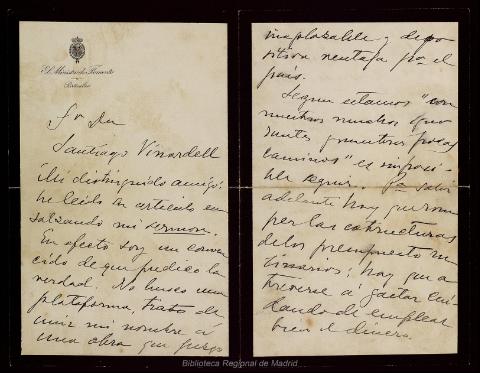 El Ministro de Fomento
Particular
Sr Dn
Santiago Vinardell
Mi distinguido amigo:
he leido su articulo en
salzando mi sermon.
En efecto soy un conven
cido de que predico la
verdad. No busco una
plataforma, trato de
unir mi nombre á
una obra que juzgo
inaplazable y de po
sitiva ventaja por el
país.
Segun estamos "con
nuestros muchos
caminos" es imposi
ble seguir. Para salir
adelante hay que rom
per las estructuras
de los presupuestos or
dinarios; hay que a
treverse á gastar cui
dando de emplear
bien el dinero.
Biblioteca Regional de Madrid